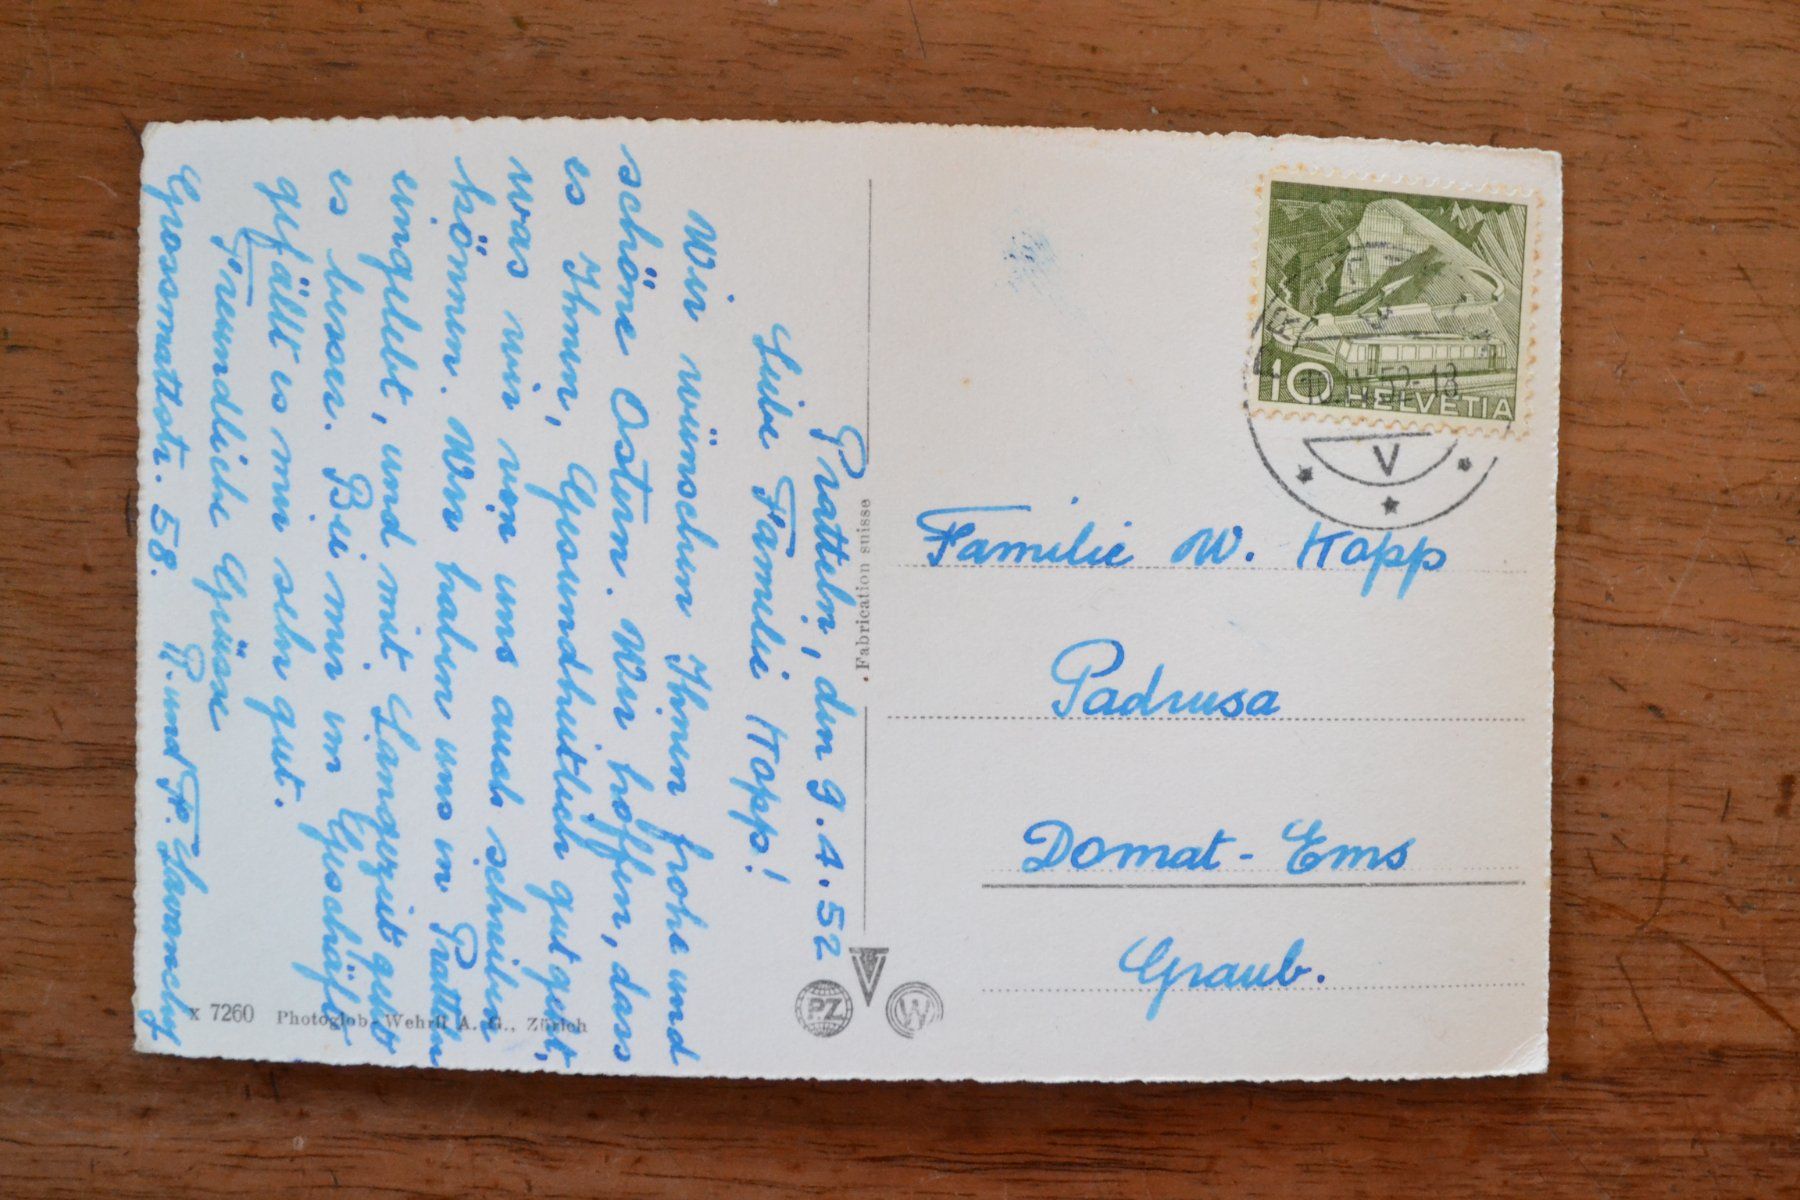 Pratteln, den 9.4.52
Liebe Familie Kopp!
Wir wünschen Ihnen frohe und
schöne Ostern. Wir hoffen, dass
es Ihnen, Gesundheitlich gut geht,
was wir von uns auch schreiben
können. Wir haben uns in Pratteln
eingelebt, und mit Langezeit geht
es besser. Bei mir im Geschäft
gefällt es mir sehr gut.
Freundliche Grüsse
Grossmattstr. 58. R. und H.
Fabrication suisse
x 7260 Photoglob-Wehrli A. G., Zürich
PZ
W
10 HELVETIA
10.IV.52-18
V
Familie W. Kopp
Padrusa
Domat-Ems
Graub.